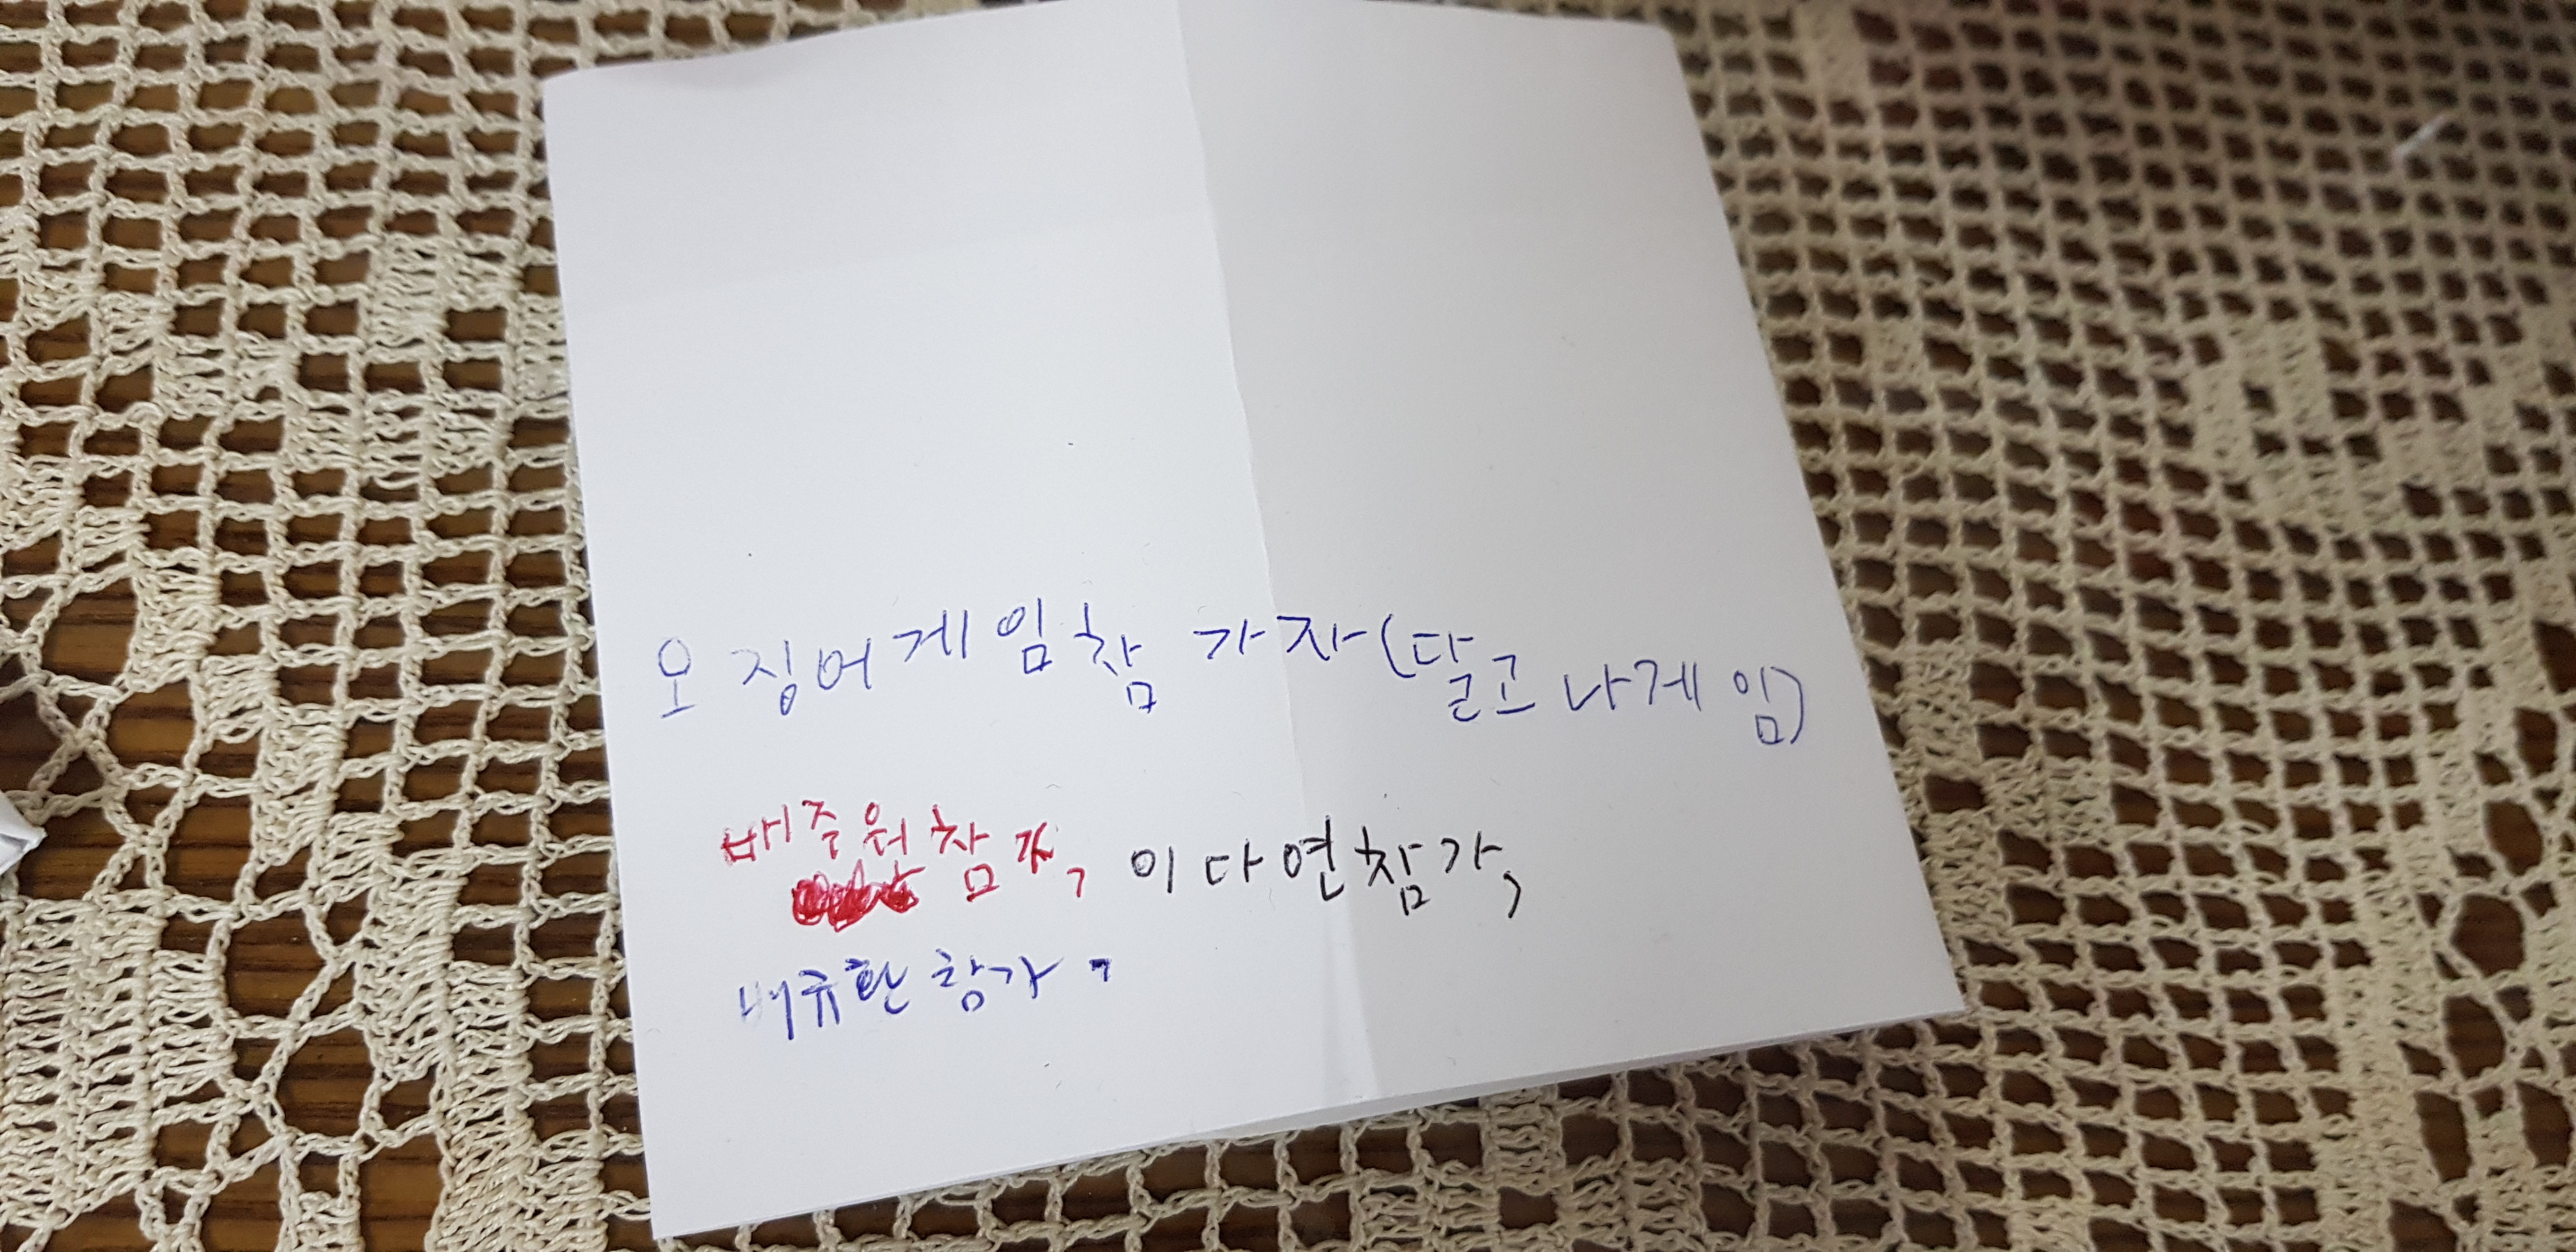 오징어게임참가자(달고나게임)
배주원참가, 이다연참가,
배규환참가,